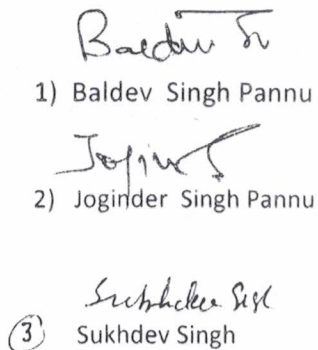 Baldev S
1) Baldev Singh Pannu
2) Joginder Singh Pannu
Sukhdev Singh
3 Sukhdev Singh